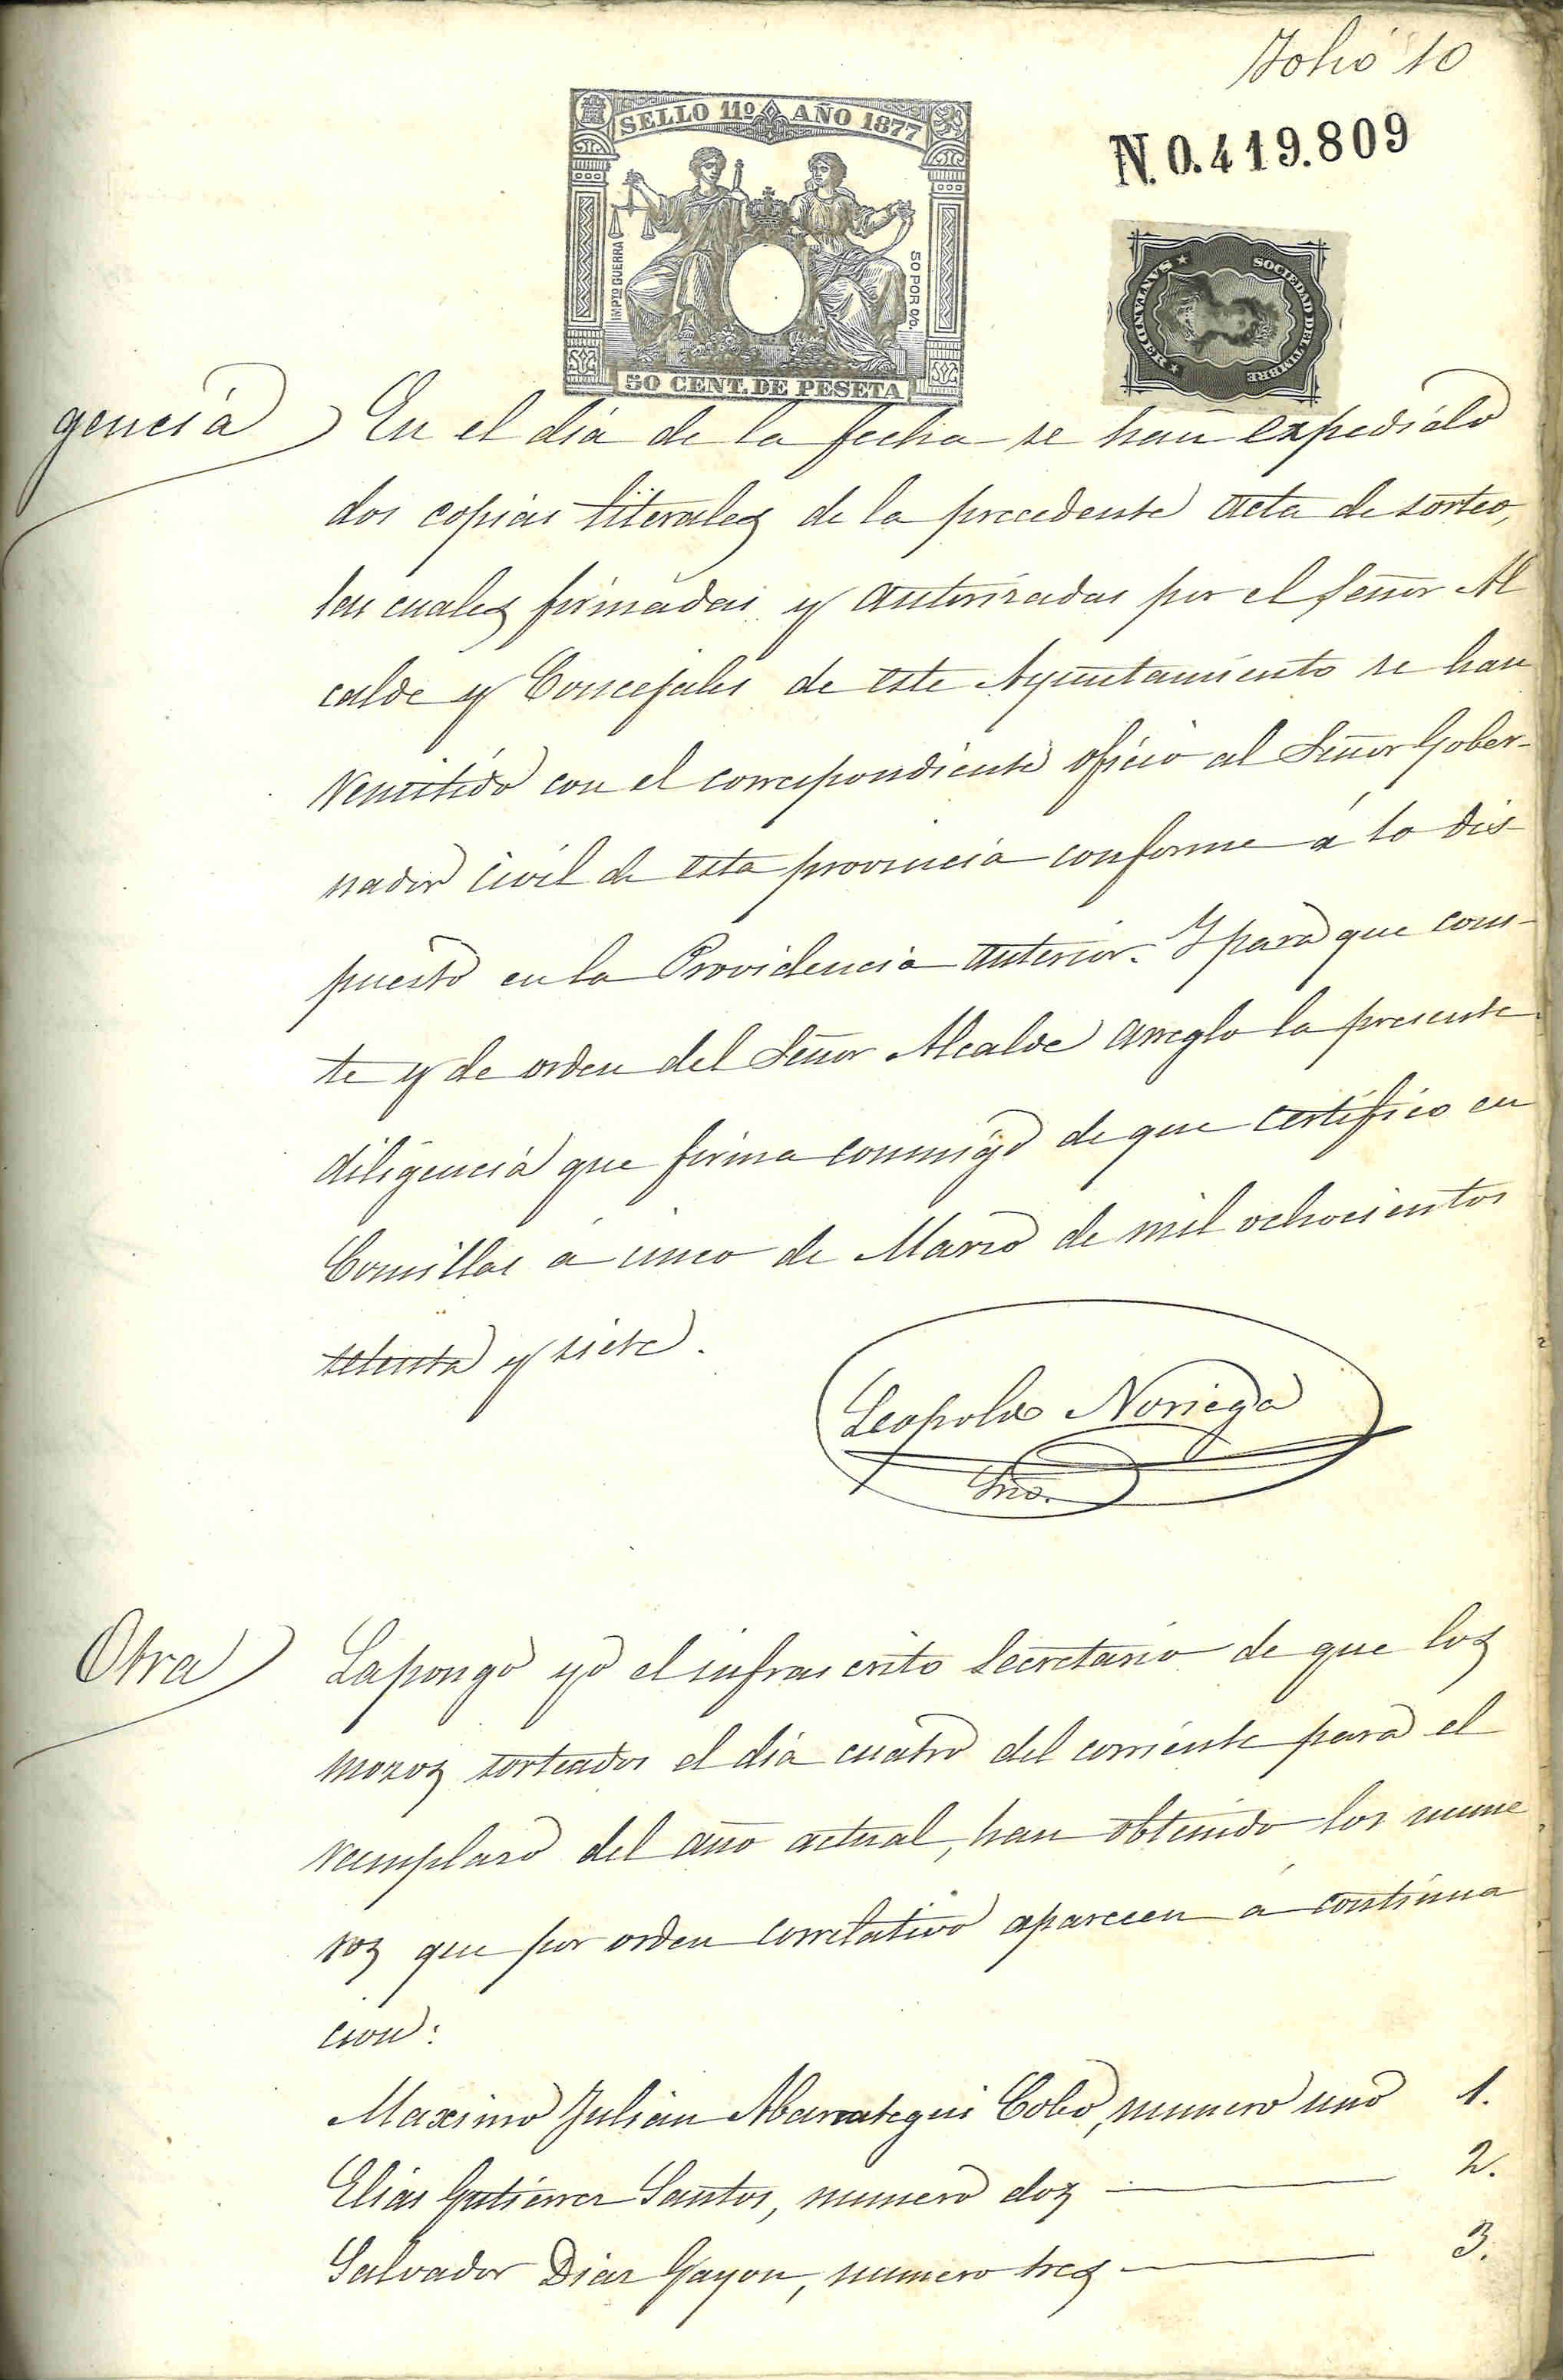 Folio 10
SELLO 11º AÑO 1877
N. 0.419.809
IMPTO GUERRA
50 POR O/O.
SOCIEDAD DEL TIMBRE
SANTANDER
50 CENT. DE PESETA
gencia
En el dia de la fecha se han expedido
dos copias literales de la precedente acta de sorteo,
las cuales firmadas y autorizadas por el Señor Al
calde y Concejales de este Ayuntamiento se han
remitido con el correspondiente oficio al Señor Gober-
nador Civil de esta provincia conforme á lo dis-
puesto en la Providencia anterior. Y para que cons-
te y de orden del Señor Alcalde arreglo la presente
diligencia que firma conmigo de que certifico en
Comillas á cinco de Marzo de mil ochocientos
setenta y siete.
Leopoldo Noriega
Srio.
Otra
La pongo yo el infrascrito Secretario de que los
mozos sorteados el dia cuatro del corriente para el
reemplazo del año actual, han obtenido los nume
ros que por orden correlativo aparecen á continua
cion:
Maximo Julian Abarrategui Cobo, numero uno 1.
Elias Gutierrez Santos, numero dos 2.
Salvador Diaz Gayon, numero tres 3.